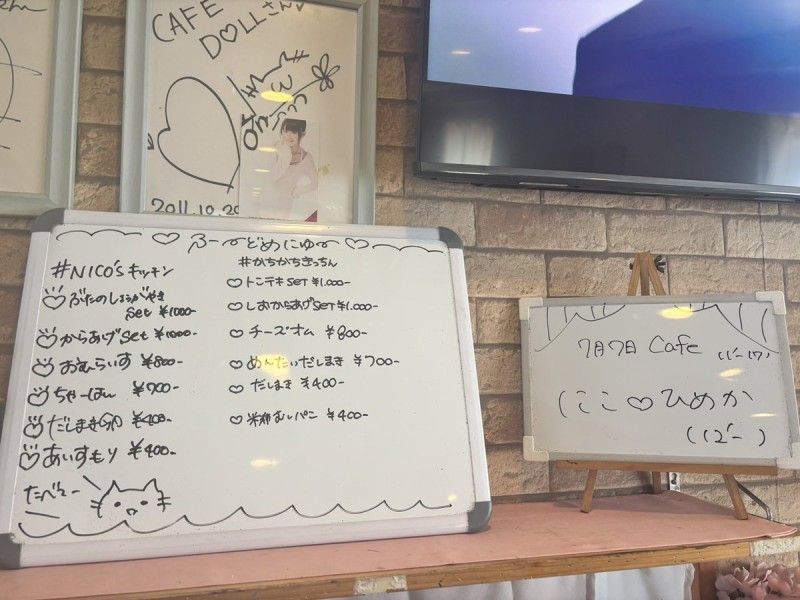 CAFE
DOLLさん
2011.10.20
ふ〜どめにゅ〜
#NICO'sキッチン
ぶたのしょうがやき
set ¥1000-
からあげset ¥1000-
おむらいす ¥800-
ちゃーはん ¥700-
だしまき卵 ¥400-
あいすもり ¥400-
たべてー
#かちかちきっちん
トンテキSET ¥1.000-
しおからあげSET ¥1.000-
チーズオム ¥800-
めんたいだしまき ¥700-
だしまき ¥400-
米粉むしパン ¥400-
7月7日 Cafe (11'-17)
にこ♡ひめか
(12'-)